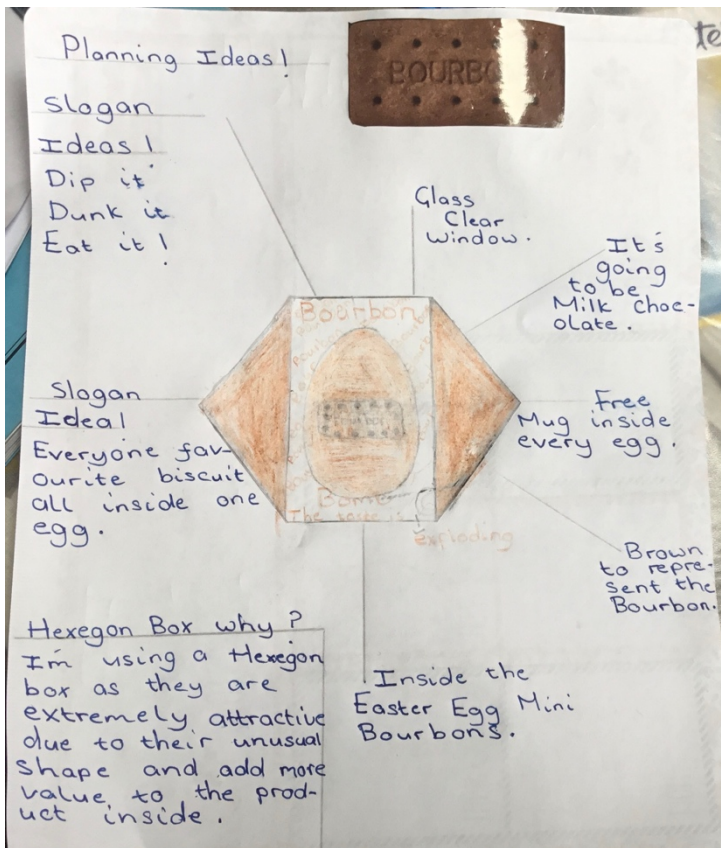 Planning Ideas!
BOURBO
te
Slogan
Ideas!
Dip it
Dunk it
Eat it!
Glass
Clear
Window.
It's
going
to be
Milk Choc-
olate.
Bourbon
Slogan
Idea!
Everyone fav-
ourite biscuit
all inside one
egg.
Free
Mug inside
every egg.
The taste is
exploding
Brown
to repre-
sent the
Bourbon.
Hexegon Box why?
I'm using a Hexegon
box as they are
extremely attractive
due to their unusual
Shape and add more
value to the prod-
uct inside.
Inside the
Easter Egg Mini
Bourbons.